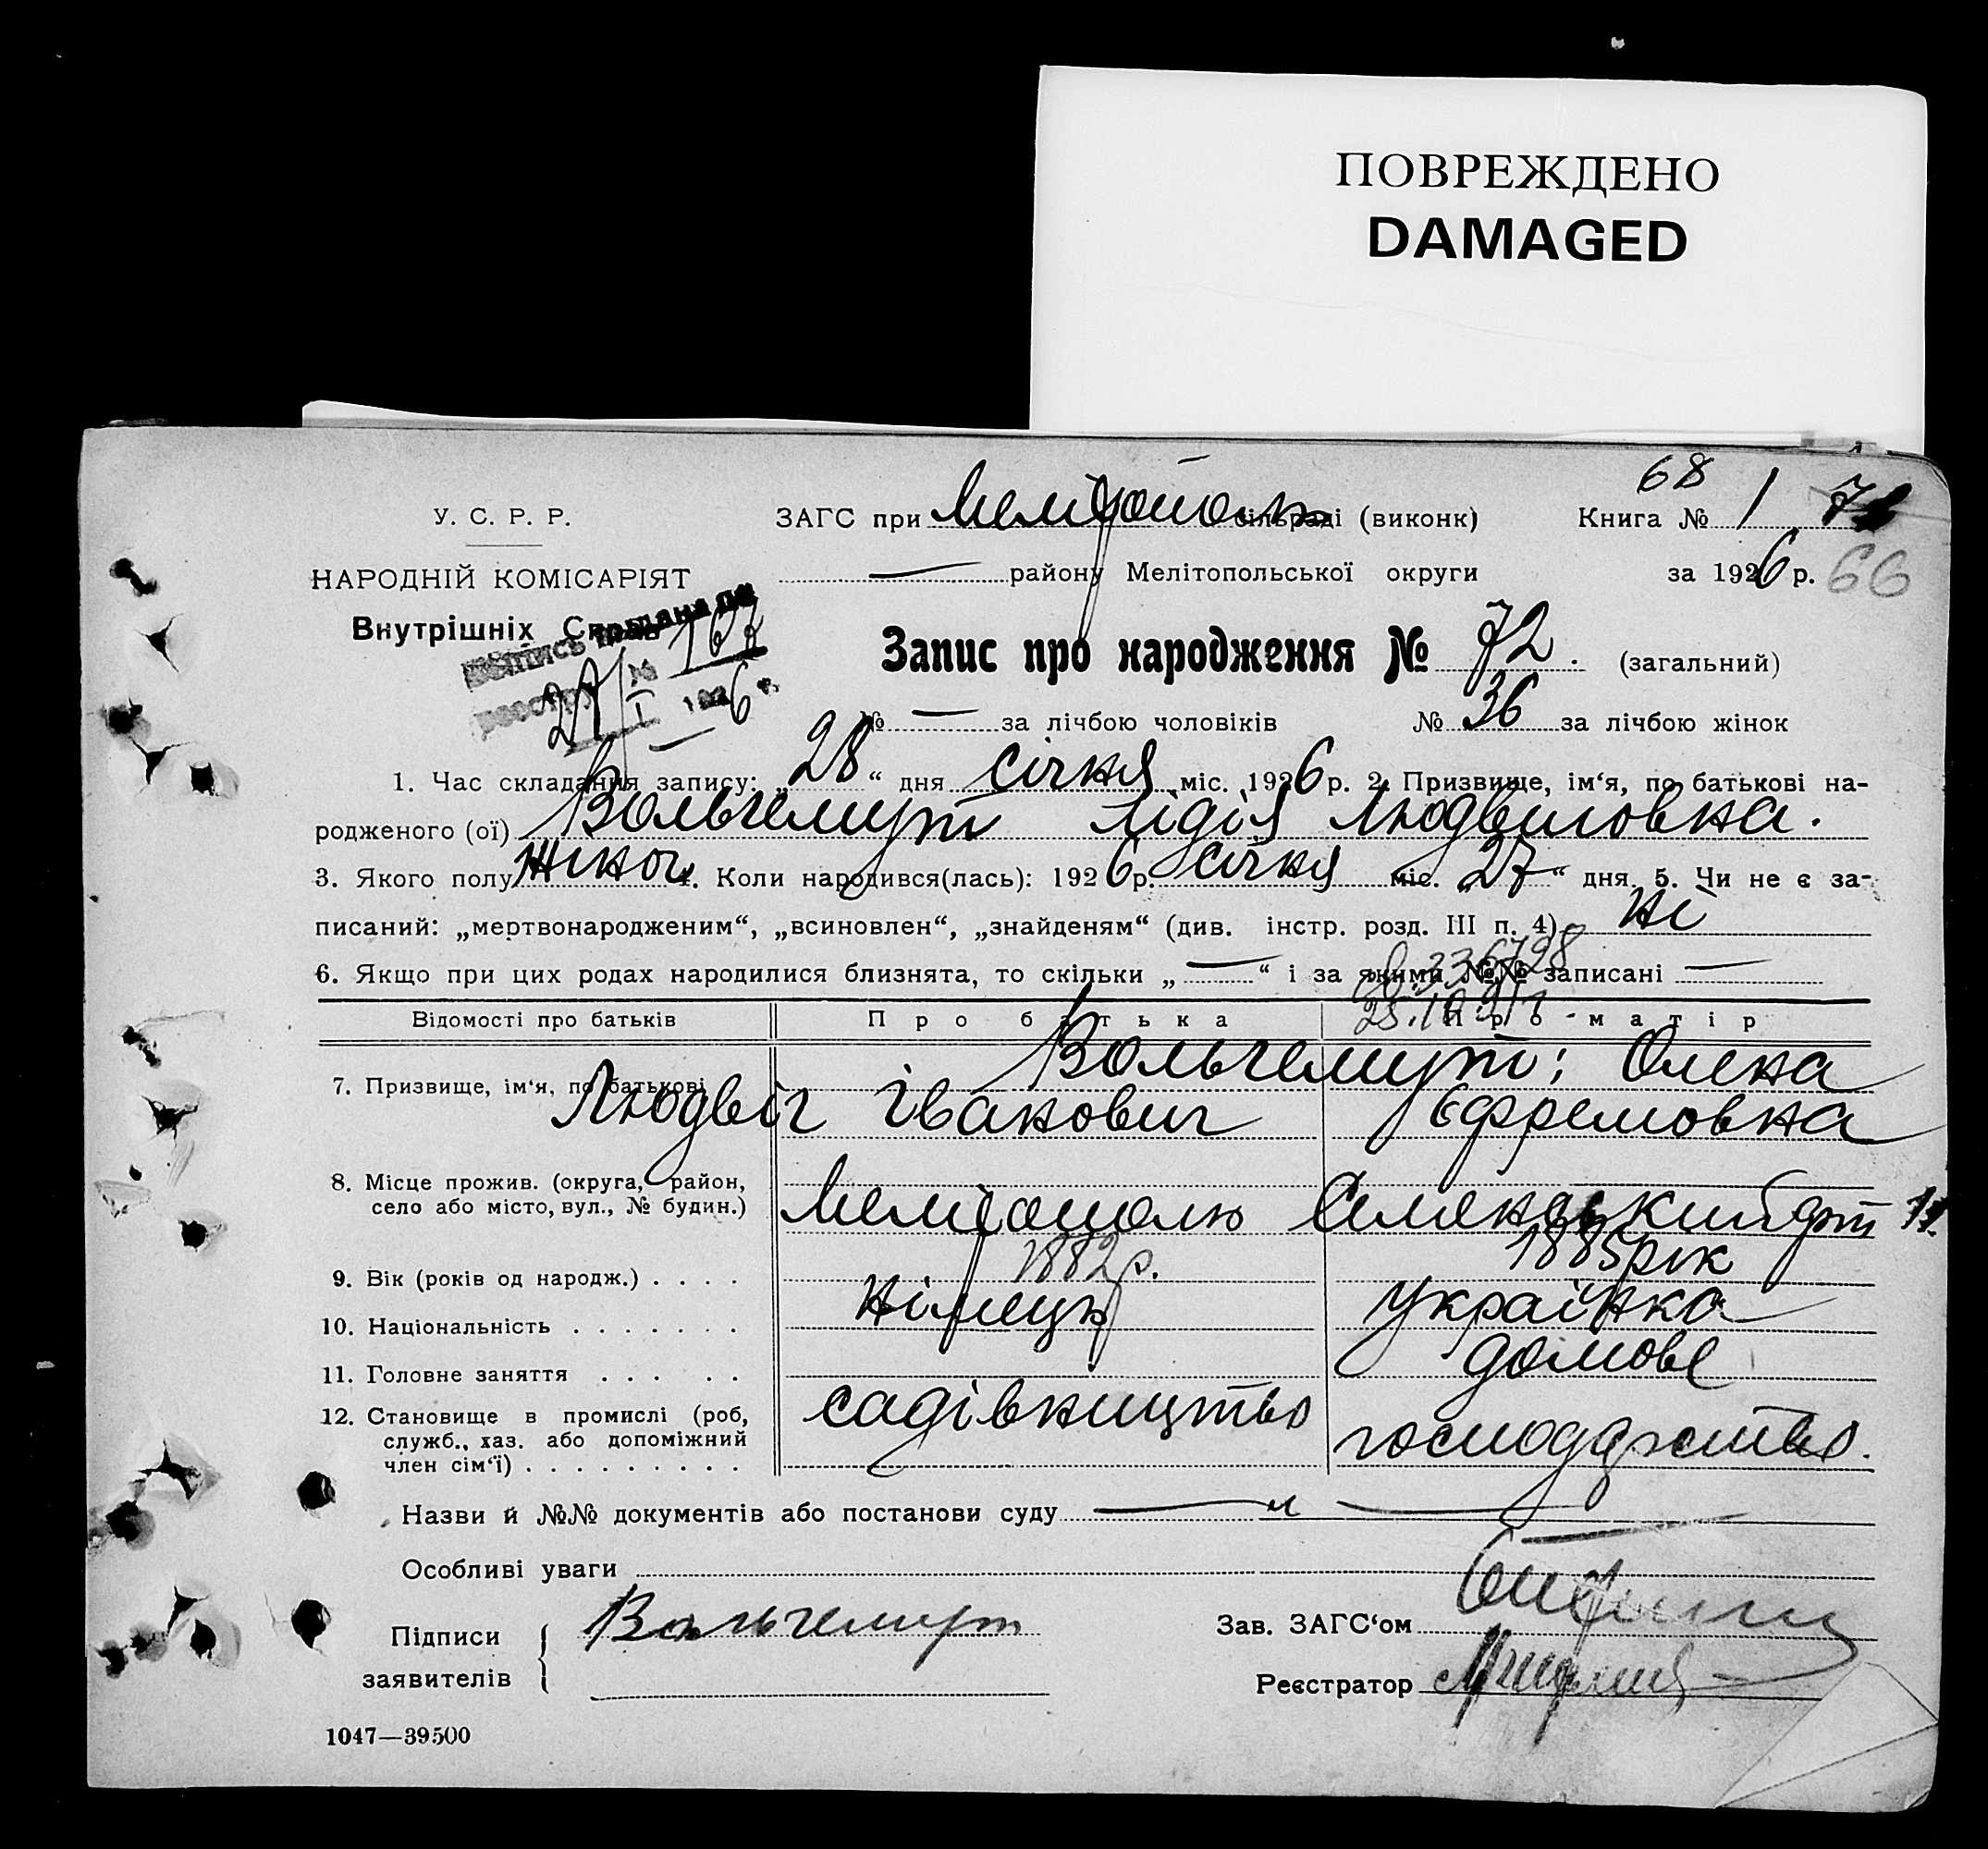 ПОВРЕЖДЕНО
DAMAGED
68
У. С. Р. Р.
ЗАГС при Мелітополь сільраді (виконк)
Книга № 1 71
НАРОДНІЙ КОМІСАРІЯТ
— району Мелітопольської округи
за 1926 р. 66
Внутрішніх Справ
Запис про народження № 72. (загальний)
№ — за лічбою чоловіків № 36 за лічбою жінок
1. Час складання запису: „28“ дня січня міс. 1926 р. 2. Призвище, ім‘я, по батькові на-
родженого (ої) Вольгемут Лідія Людвиговна.
3. Якого полу жіноч 4. Коли народився(лась): 1926 р. січня міс. „27“ дня. 5. Чи не є за-
писаний: „мертвонародженим“, „всиновлен“, „знайденям“ (див. інстр. розд. III п. 4) ні
6. Якщо при цих родах народилися близнята, то скільки „—“ і за якими №№ записані —
336728
Відомості про батьків
Про батька
Про матір
7. Призвище, ім‘я, по батькові
Вольгемут; Олена
Людвіг Іванович Єфремовна
8. Місце прожив. (округа, район,
село або місто, вул., № будин.)
Мелітополь
9. Вік (років од народж.) . . . .
1882 р.
1885 рік
10. Національність . . . . . . .
німець
Українка
11. Головне заняття . . . . .
домове
12. Становище в промислі (роб,
служб., хаз. або допоміжний
член сім‘ї) . . . . . . . . .
садівництво
господарство.
Назви й №№ документів або постанови суду —
Особливі уваги
Підписи
заявителів
Вольгемут
Зав. ЗАГС‘ом
Реєстратор
1047—39500